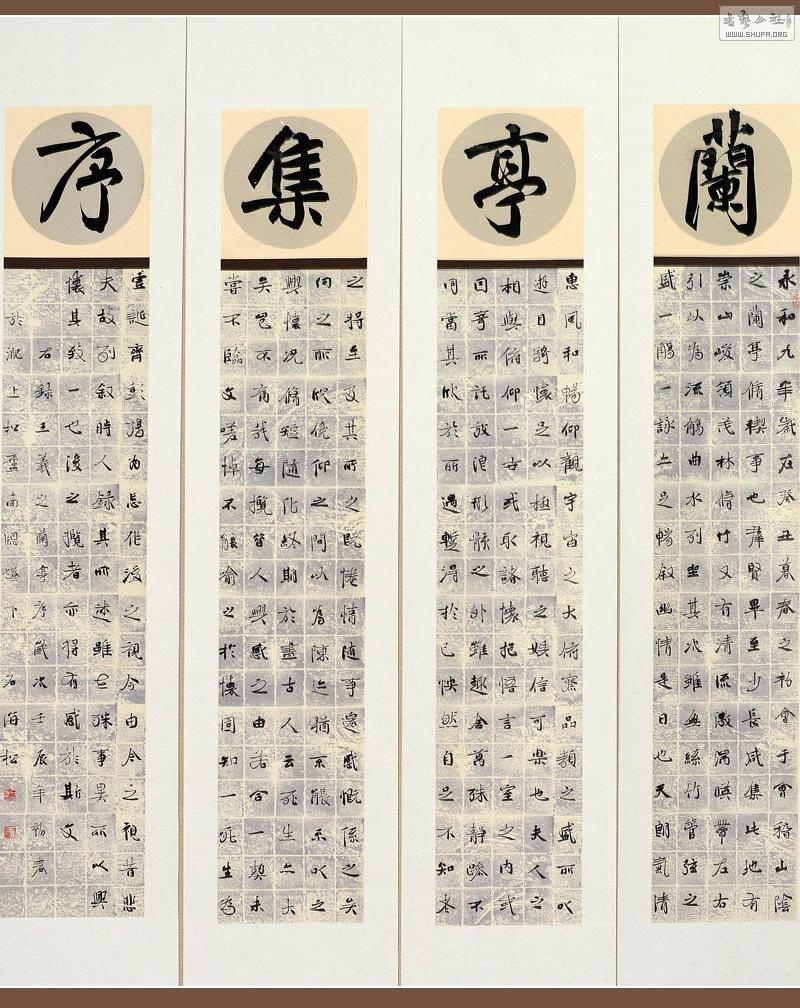 蘭
亭
集
序
永和九年歲在癸丑暮春之初會于會稽山陰
之蘭亭脩禊事也羣賢畢至少長咸集此地有
崇山峻領茂林脩竹又有清流激湍暎帶左右
引以為流觴曲水列坐其次雖無絲竹管弦之
盛一觴一詠亦足暢敘幽情是日也天朗氣清
惠風和暢仰觀宇宙之大俯察品類之盛所以
遊目騁懷足以極視聽之娛信可樂也夫人之
相與俯仰一世或取諸懷抱悟言一室之內或
因寄所託放浪形骸之外雖趣舍萬殊靜躁不
同當其欣於所遇暫得於己怏然自足不知老
之將至及其所之既惓情隨事遷感慨係之矣
向之所欣俛仰之間以為陳迹猶不能不以之
興懷況脩短隨化終期於盡古人云死生亦大
矣豈不痛哉每攬昔人興感之由若合一契未
嘗不臨文嗟悼不能喻之於懷固知一死生為
虛誕齊彭殤為妄作後之視今由今之視昔悲
夫故列敘時人錄其所述雖世殊事異所以興
懷其致一也後之攬者亦將有感於斯文
右錄王羲之蘭亭序歲次壬辰年初春
於淝上和南下石海松
WWW.SHUFA.ORG